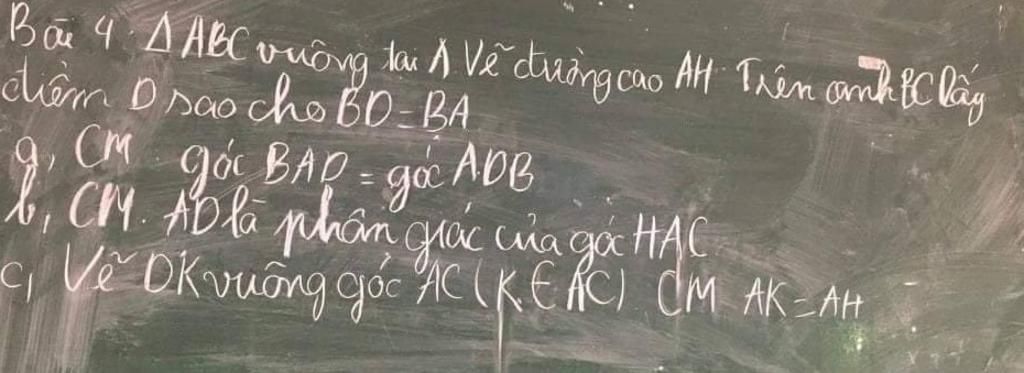 Bài 4. Δ ABC vuông tại A Vẽ đường cao AH. Trên cạnh BC lấy
điểm D sao cho BD = BA
a, CM góc BAD = góc ADB
b, CM. AD là phân giác của góc HAC
c, Vẽ DK vuông góc AC (K ∈ AC) CM AK = AH